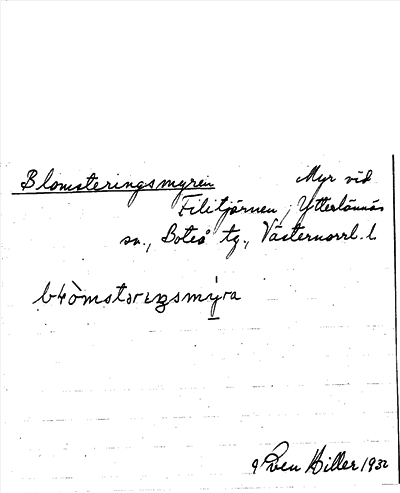 Blomsteringsmyren Myr vid
Filitjärnen, Ytterlännäs
sn., Boteå tg., Västernorrl. l.
bɬòmstərıŋsmy̆ra
Sven Hiller 1932